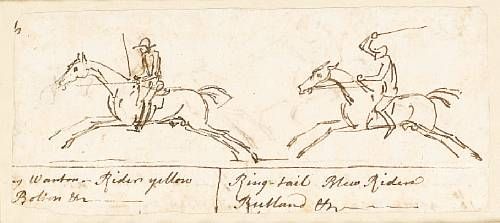 Wanton - Rider yellow
Bolton &c
Ring-tail Blew Rider
Rutland &c